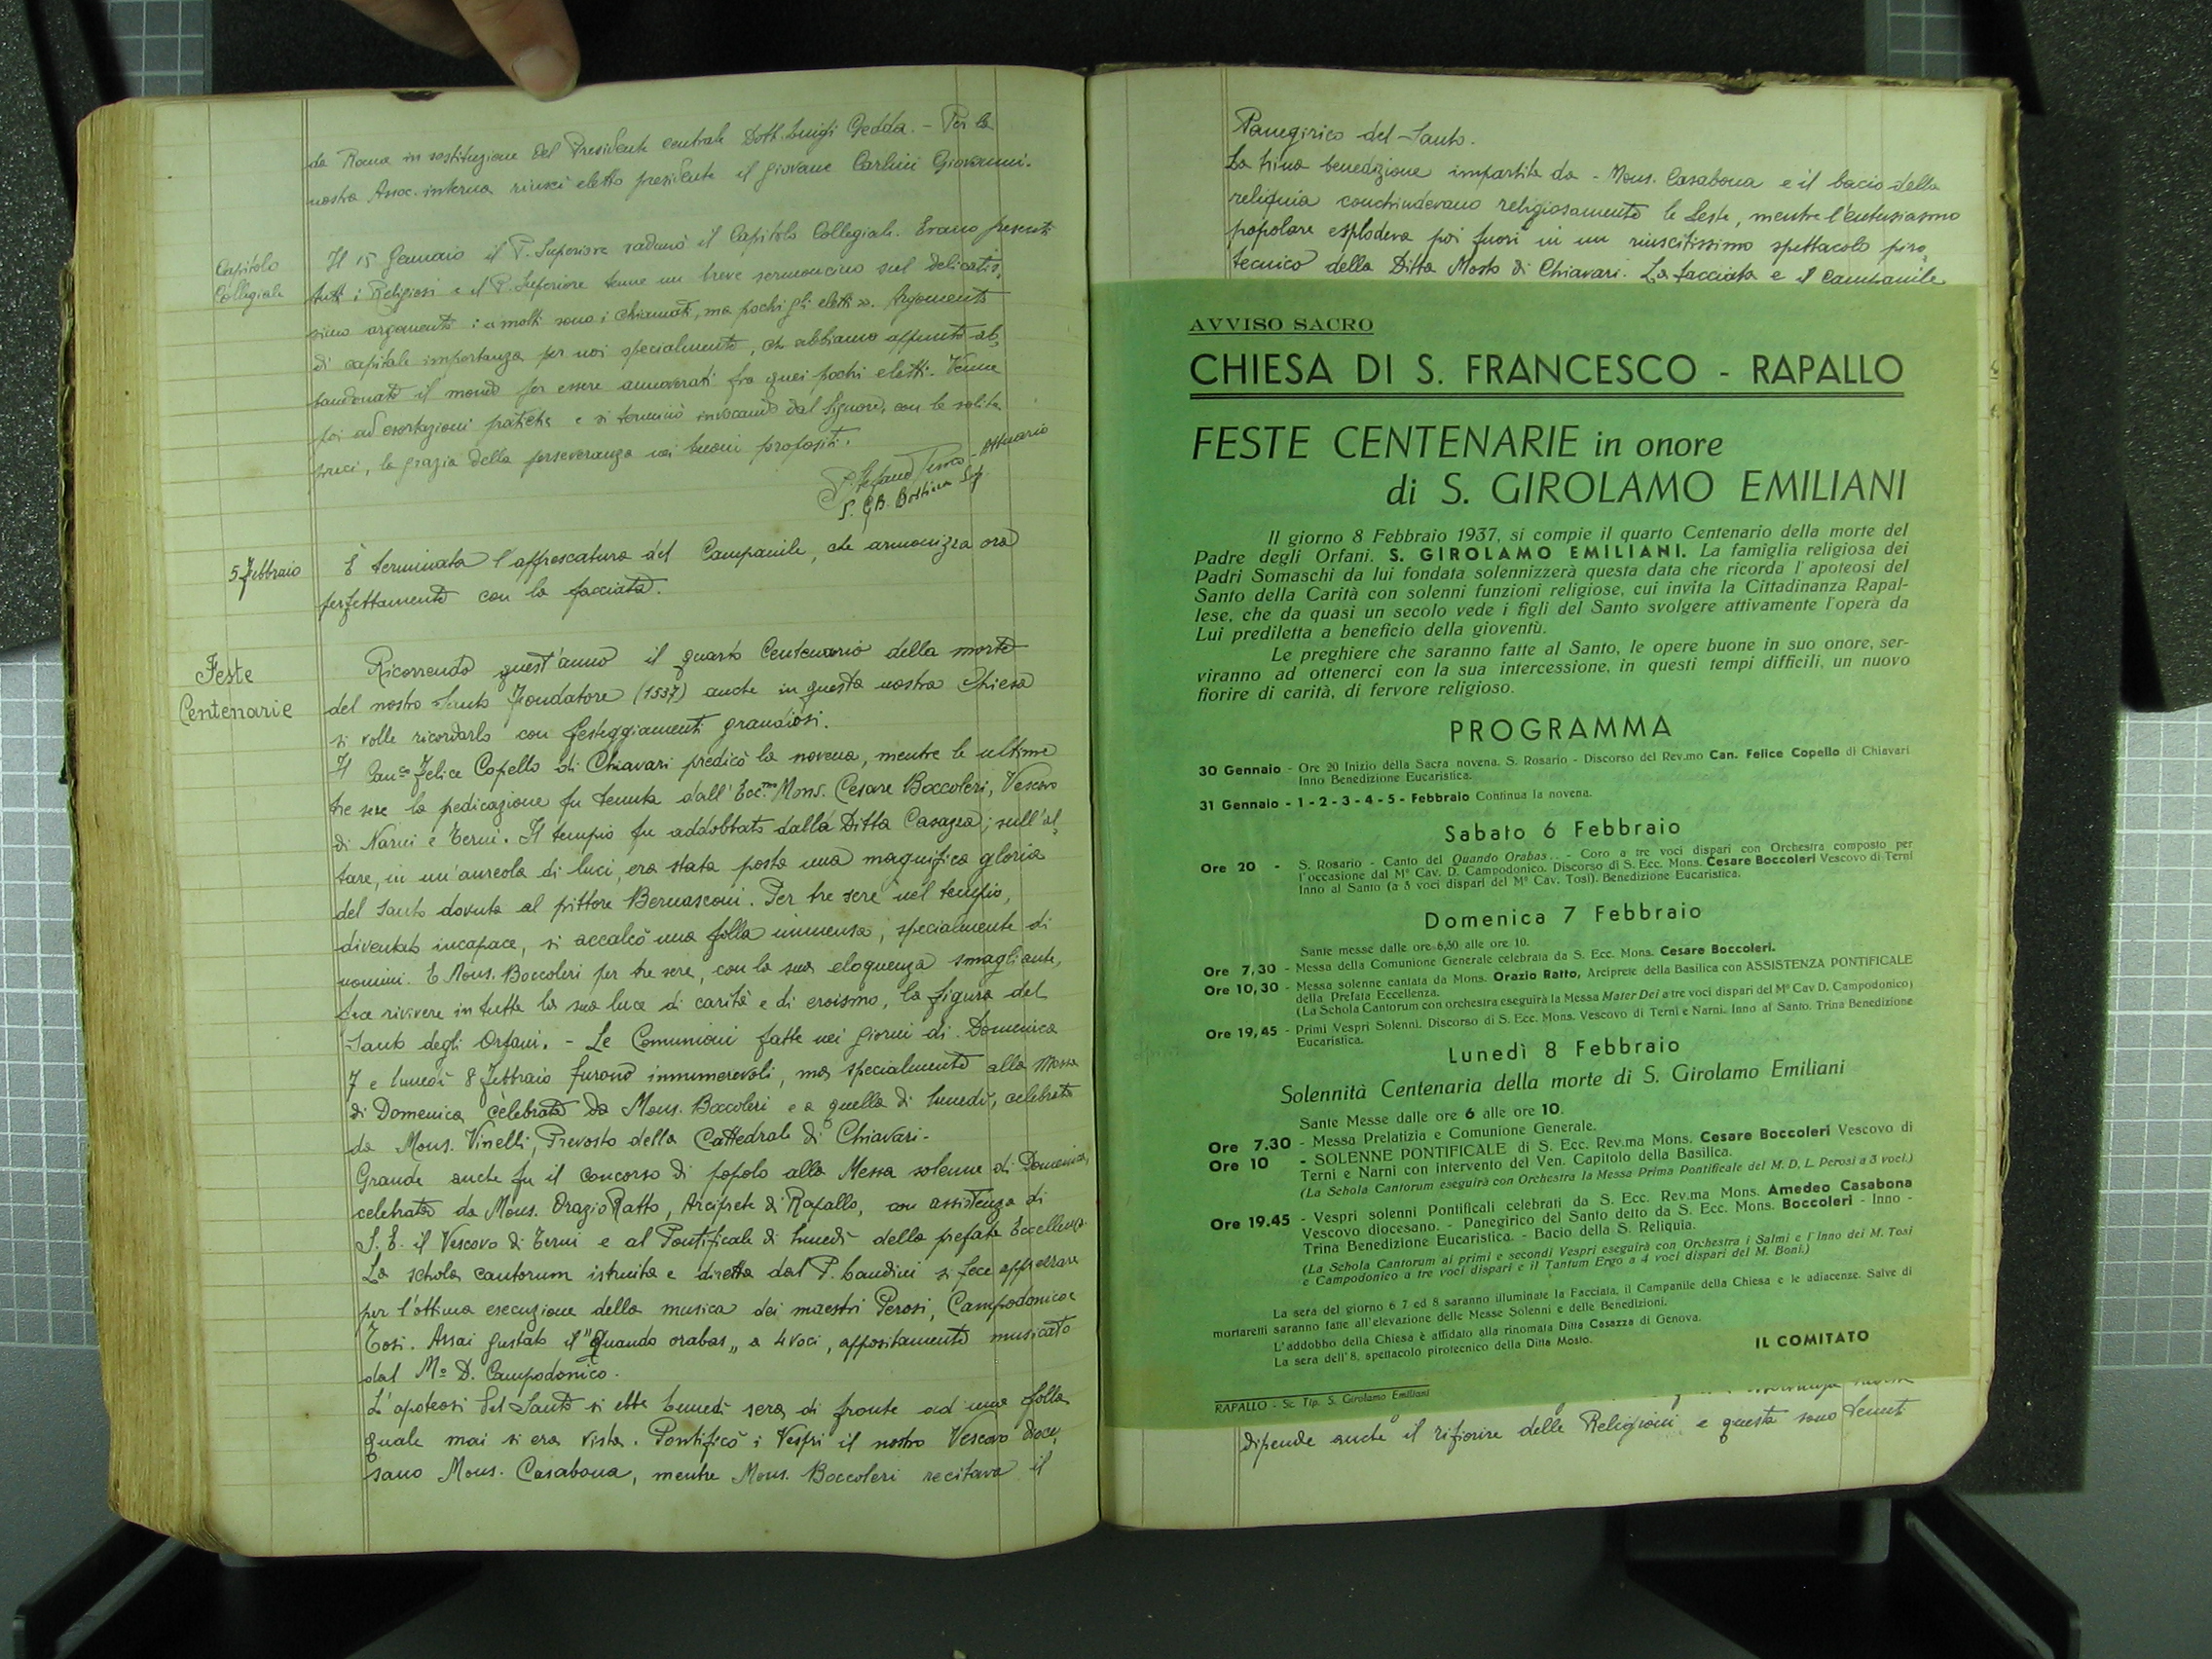 da Roma in sostituzione del Presidente centrale Dott. Luigi Gedda. - Per la
nostra Assoc. interna riuscì eletto presidente il giovane Carlini Giovanni.
Capitolo
Collegiale
Il 15 Gennaio il P. Superiore radunò il Capitolo Collegiale. Erano presenti
tutti i Religiosi e il P. Superiore tenne un breve sermoncino sul delicatis-
simo argomento: « molti sono i chiamati, ma pochi gli eletti ». Argomento
di capitale importanza per noi specialmente, che abbiamo appunto ab-
bandonato il mondo per essere annoverati fra quei pochi eletti. Venne
poi ad esortazioni pratiche e si terminò invocando dal Signore, con le solite
preci, la grazia della perseveranza nei buoni propositi.
P. Stefano - Attuario
P. GB.
5 Febbraio
È terminata l'affrescatura del Campanile, che armonizza ora
perfettamente con la facciata.
Feste
Centenarie
Ricorrendo quest'anno il quarto Centenario della morte
del nostro Santo Fondatore (1537) anche in questa nostra Chiesa
si volle ricordarlo con festeggiamenti grandiosi.
Il Can.co Felice Copello di Chiavari predicò la novena, mentre le ultime
tre sere la pedicazione fu tenuta dall'Ecc.mo Mons. Cesare Boccoleri, Vescovo
di Narni e Terni. Il tempio fu addobbato dalla Ditta Casazza; sull'al-
tare, in un'aureola di luci, era stata posta una magnifica gloria
del Santo dovuta al pittore Bernasconi. Per tre sere nel tempio,
diventato incapace, si accalcò una folla immensa, specialmente di
uomini. E Mons. Boccoleri per tre sere, con la sua eloquenza smagliante,
fece rivivere in tutta la sua luce di carità e di eroismo, la figura del
Santo degli Orfani. - Le Comunioni fatte nei giorni di Domenica
7 e lunedì 8 Febbraio furono innumerevoli, ma specialmente alla Messa
di Domenica celebrata da Mons. Boccoleri e a quella di lunedì, celebrata
da Mons. Vinelli, Prevosto della Cattedrale di Chiavari.
Grande anche fu il concorso di popolo alla Messa solenne di Domenica,
celebrata da Mons. Orazio Ratto, Arciprete di Rapallo, con assistenza di
S. E. il Vescovo di Terni e al Pontificale di lunedì della prefata Eccellenza.
La schola cantorum istruita e diretta dal P. Landini si fece apprezzare
per l'ottima esecuzione della musica dei maestri Perosi, Campodonico e
Tosi. Assai gustato il "Quando orabas„ a 4 voci, appositamente musicato
dal M° D. Campodonico.
L'apoteosi del Santo si ebbe lunedì sera di fronte ad una folla
quale mai si era vista. Pontificò i Vespri il nostro Vescovo dioce-
sano Mons. Casabona, mentre Mons. Boccoleri recitava il
Panegirico del Santo.
La trina benedizione impartita da - Mons. Casabona e il bacio della
reliquia conchiudevano religiosamente le feste, mentre l'entusiasmo
popolare esplodeva poi fuori in un riuscitissimo spettacolo piro-
tecnico della Ditta Mosto di Chiavari. La facciata e il campanile
AVVISO SACRO
CHIESA DI S. FRANCESCO - RAPALLO
FESTE CENTENARIE in onore
di S. GIROLAMO EMILIANI
Il giorno 8 Febbraio 1937, si compie il quarto Centenario della morte del
Padre degli Orfani. S. GIROLAMO EMILIANI. La famiglia religiosa dei
Padri Somaschi da lui fondata solennizzerà questa data che ricorda l'apoteosi del
Santo della Carità con solenni funzioni religiose, cui invita la Cittadinanza Rapal-
lese, che da quasi un secolo vede i figli del Santo svolgere attivamente l'operà da
Lui prediletta a beneficio della gioventù.
Le preghiere che saranno fatte al Santo, le opere buone in suo onore, ser-
viranno ad ottenerci con la sua intercessione, in questi tempi difficili, un nuovo
fiorire di carità, di fervore religioso.
PROGRAMMA
30 Gennaio - Ore 20 Inizio della Sacra novena. S. Rosario - Discorso del Rev.mo Can. Felice Copello di Chiavari
Inno Benedizione Eucaristica.
31 Gennaio - 1 - 2 - 3 - 4 - 5 - Febbraio Continua la novena.
Sabato 6 Febbraio
Ore 20 - S. Rosario - Canto del Quando Orabas... - Coro a tre voci dispari con Orchestra composto per
l'occasione dal M° Cav. D. Campodonico. Discorso di S. Ecc. Mons. Cesare Boccoleri Vescovo di Terni
Inno al Santo (a 3 voci dispari del M° Cav. Tosi). Benedizione Eucaristica.
Domenica 7 Febbraio
Sante messe dalle ore 6,30 alle ore 10.
Ore 7,30 - Messa della Comunione Generale celebrata da S. Ecc. Mons. Cesare Boccoleri.
Ore 10,30 - Messa solenne cantata da Mons. Orazio Ratto, Arciprete della Basilica con ASSISTENZA PONTIFICALE
della Prefata Eccellenza.
(La Schola Cantorum con orchestra eseguirà la Messa Mater Dei a tre voci dispari del M° Cav D. Campodonico)
Ore 19,45 - Primi Vespri Solenni. Discorso di S. Ecc. Mons. Vescovo di Terni e Narni. Inno al Santo. Trina Benedizione
Eucaristica.
Lunedì 8 Febbraio
Solennità Centenaria della morte di S. Girolamo Emiliani
Sante Messe dalle ore 6 alle ore 10.
Ore 7.30 - Messa Prelatizia e Comunione Generale.
Ore 10 - SOLENNE PONTIFICALE di S. Ecc. Rev.ma Mons. Cesare Boccoleri Vescovo di
Terni e Narni con intervento del Ven. Capitolo della Basilica.
(La Schola Cantorum eseguirà con Orchestra la Messa Prima Pontificale del M. D. L. Perosi a 3 voci.)
Ore 19.45 - Vespri solenni Pontificali celebrati da S. Ecc. Rev.ma Mons. Amedeo Casabona
Vescovo diocesano. - Panegirico del Santo detto da S. Ecc. Mons. Boccoleri - Inno -
Trina Benedizione Eucaristica. - Bacio della S. Reliquia.
(La Schola Cantorum ai primi e secondi Vespri eseguirà con Orchestra i Salmi e l'Inno dei M. Tosi
e Campodonico a tre voci dispari e il Tantum Ergo a 4 voci dispari del M. Boni.)
La sera del giorno 6 7 ed 8 saranno illuminate la Facciata, il Campanile della Chiesa e le adiacenze. Salve di
mortaretti saranno fatte all'elevazione delle Messe Solenni e delle Benedizioni.
L'addobbo della Chiesa è affidato alla rinomata Ditta Casazza di Genova.
La sera dell'8, spettacolo pirotecnico della Ditta Mosto.
IL COMITATO
RAPALLO - Sc. Tip. S. Girolamo Emiliani
dipende anche il rifiorire delle Religioni e questa sono tenuti